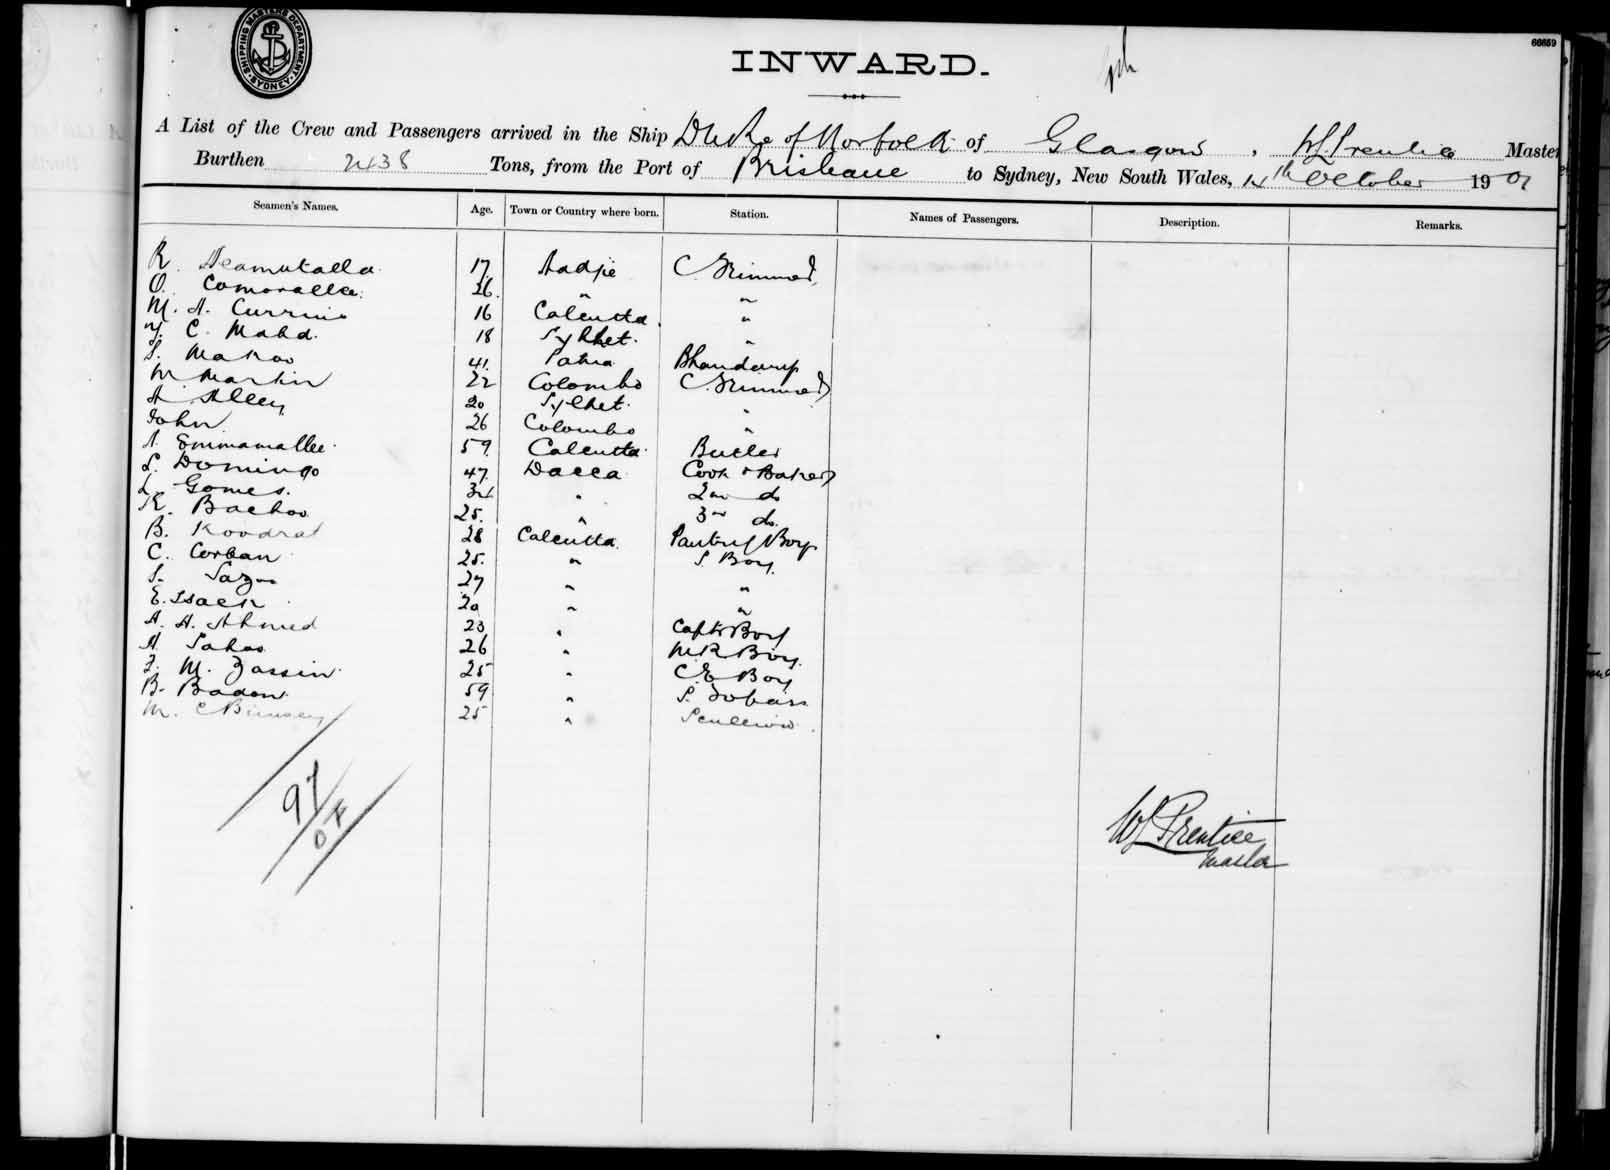 SHIPPING MASTERS DEPARTMENT · SYDNEY ·
66659
INWARD.
A List of the Crew and Passengers arrived in the Ship Duke of Norfolk of Glasgow, W L Prentice Master
Burthen 2438 Tons, from the Port of Brisbane to Sydney, New South Wales, 14th October 1901
Seamen's Names. Age. Town or Country where born. Station. Names of Passengers. Description. Remarks.
R. 17 C. Trimmer
O. 26 " "
M. A. 16 Calcutta "
C. Mahd. 18 Sylhet. "
S. 41. Patna
M Martin 22 Colombo C. Trimmer
A Alley 20 Sylhet. "
John 26 Colombo "
A. Emmamallee. 59 Calcutta Butler
S. Domingo 47. Dacca Cook & Baker
L. Gomes. 34 " 2nd do
K. Bachoo 25. " 3rd do.
B. Koodrat 28 Calcutta. Pantry Boy
C. Corban 25. " S. Boy.
S. 27 " "
E. Isack 20 " "
A. A. Ahmed 23 " Capts Boy
A. 26 " Boy.
M. Zassin. 25 " C. E. Boy
B. Badon. 59 " S. Tobass
M. 25 " Scullion
97
04
W L Prentice
Master